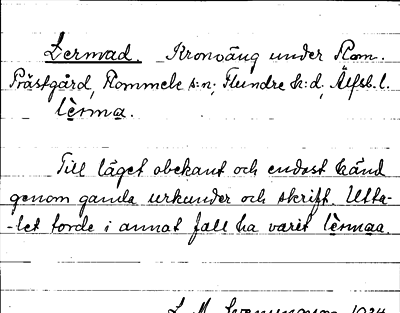 Lermad. Kronoäng under Rom.
Prästgård, Rommele s:n, Flundre h:d, Älfsb. l.
lèrma.
Till läget obekant och endast känd
genom gamla urkunder och skrift. Utta-
-let torde i annat fall ha varit lèrmaa.
1924